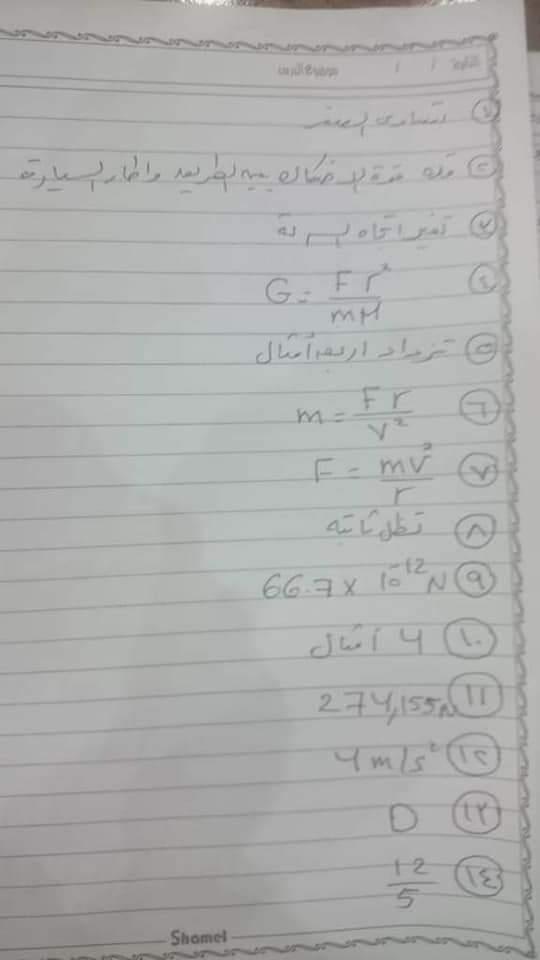 التاريخ / /
الموضوع
① تساوى الصفر
② قلة قوة الاحتكاك بين الطريق واطار السيارة
③ تغير اتجاه السرعة
④ G = F r² / m M
⑤ تزداد اربع أمثال
⑥ m = F r / v²
⑦ F = mv² / r
⑧ تظل ثابته
⑨ 66.7 × 10⁻¹² N
⑩ 4 أمثال
⑪ 274,155 N
⑫ 4 m/s²
⑬ D
⑭ 12 / 5
Shamel